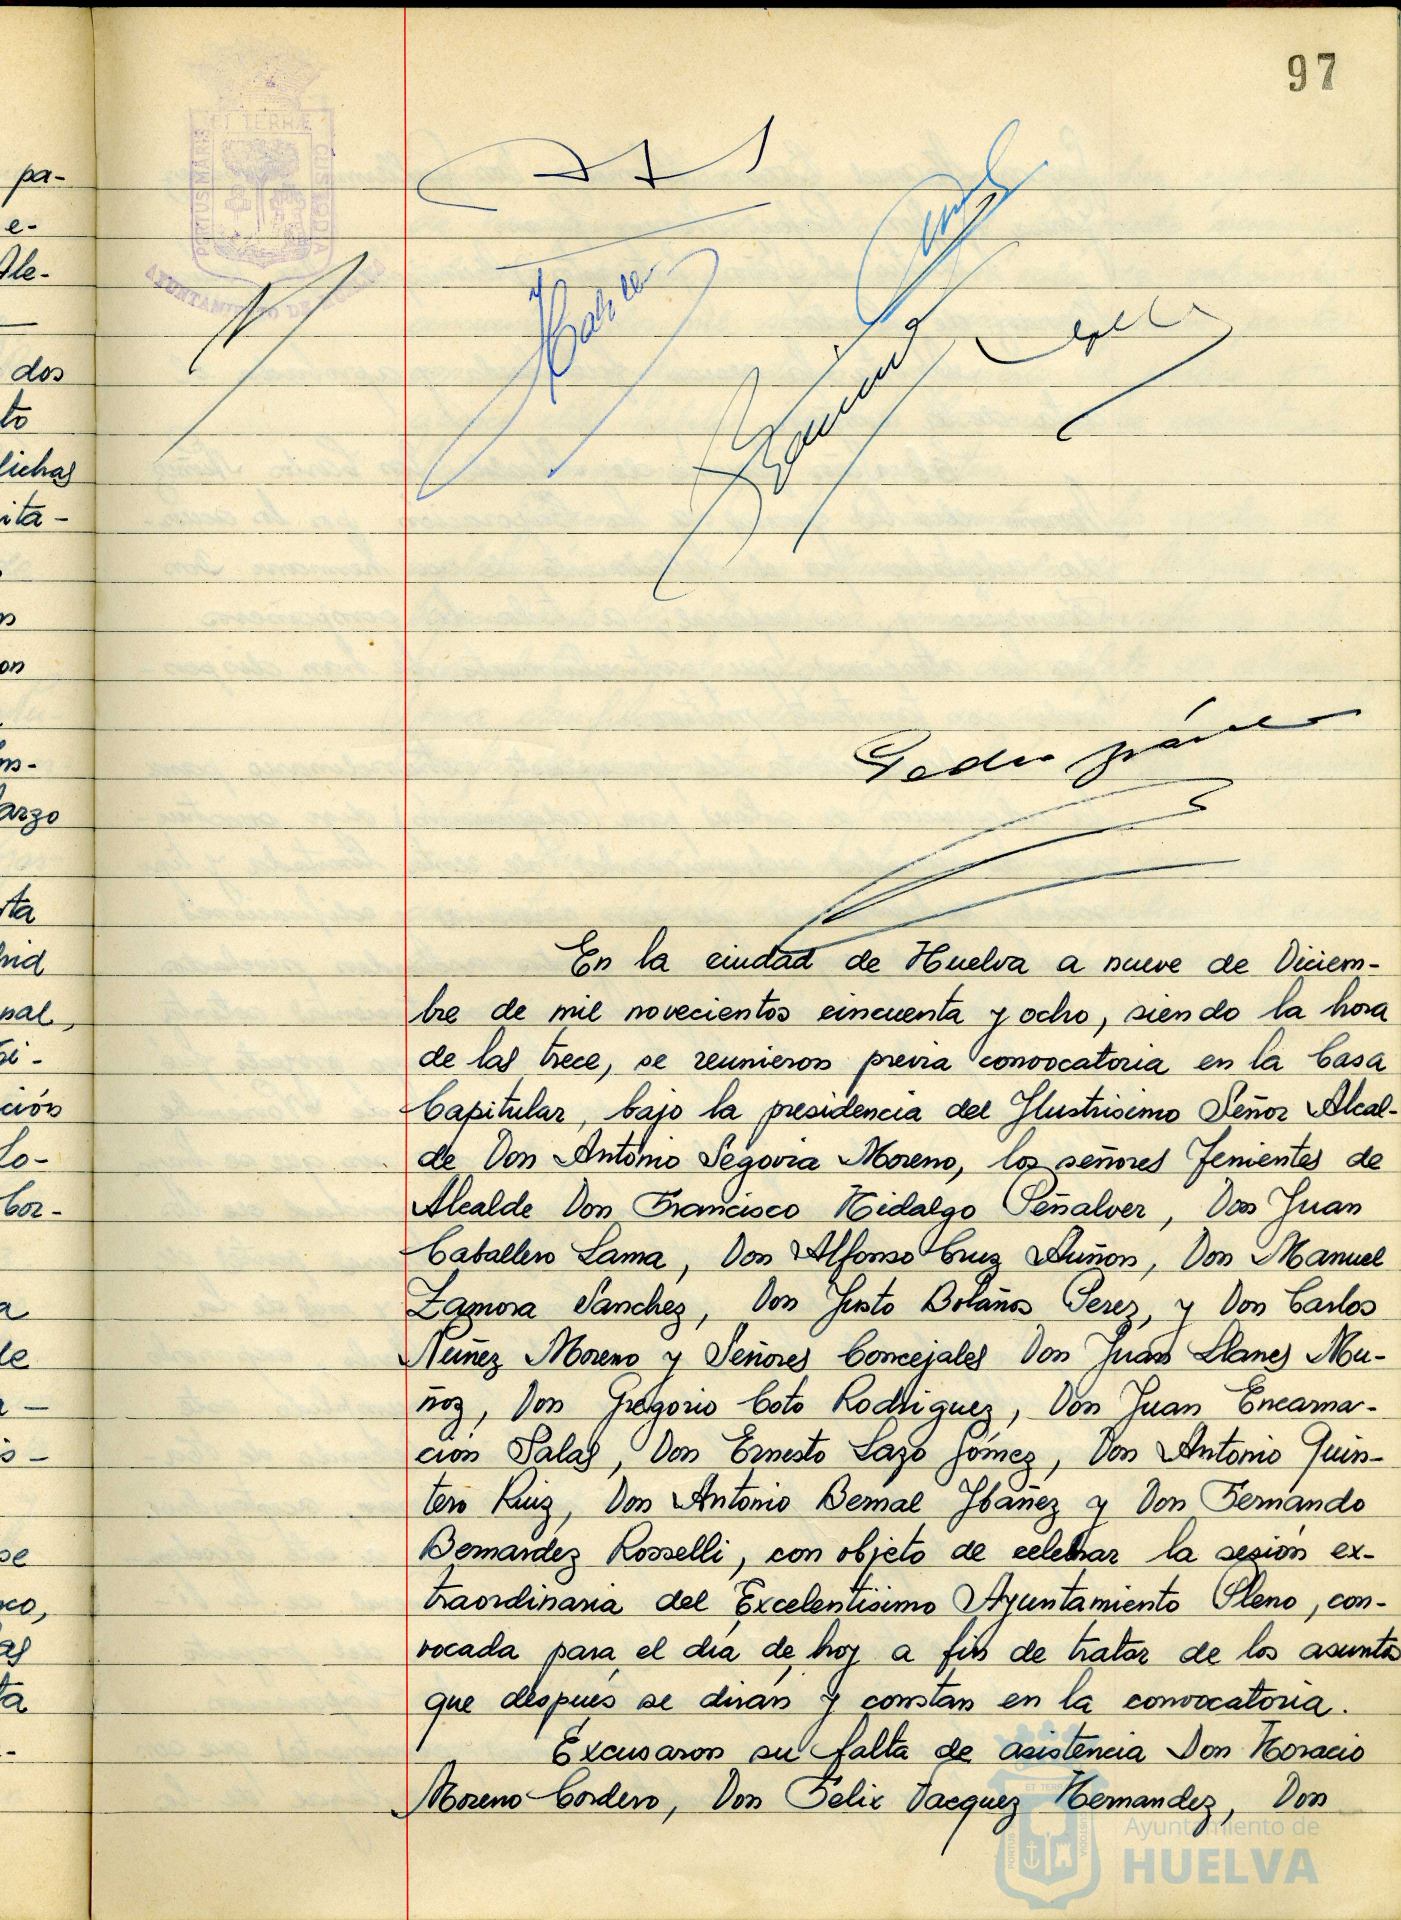 97
PORTUS MARIS
ET TERRAE
CUSTODIA
AYUNTAMIENTO DE HUELVA
pa-
e-
Ale-
dos
to
dichas
ita-
on
arzo
ta
nal,
ción
Lo-
Cor-
a
le
se
co,
as
ta
Pedro
En la ciudad de Huelva a nueve de Diciem-
bre de mil novecientos cincuenta y ocho, siendo la hora
de las trece, se reunieron previa convocatoria en la Casa
Capitular, bajo la presidencia del Ilustrisimo Señor Alcal-
de Don Antonio Segovia Moreno, los señores Tenientes de
Alcalde Don Francisco Hidalgo Peñalver, Don Juan
Caballero Lama, Don Alfonso Cruz Auñon, Don Manuel
Zamora Sanchez, Don Justo Bolaños Perez, y Don Carlos
Nuñez Moreno y Señores Concejales Don Juan Llanes Mu-
ñoz, Don Gregorio Coto Rodriguez, Don Juan Encarna-
ción Salas, Don Ernesto Lazo Gómez, Don Antonio Quin-
tero Ruiz, Don Antonio Bernal Ibáñez y Don Fernando
Bernardez Rosselli, con objeto de celebrar la sesión ex-
traordinaria del Excelentísimo Ayuntamiento Pleno, con-
vocada para el día de hoy a fin de tratar de los asuntos
que después se dirán y constan en la convocatoria.
Excusaron su falta de asistencia Don Horacio
Moreno Cordero, Don Felix Vazquez Hernandez, Don
Ayuntamiento de
HUELVA